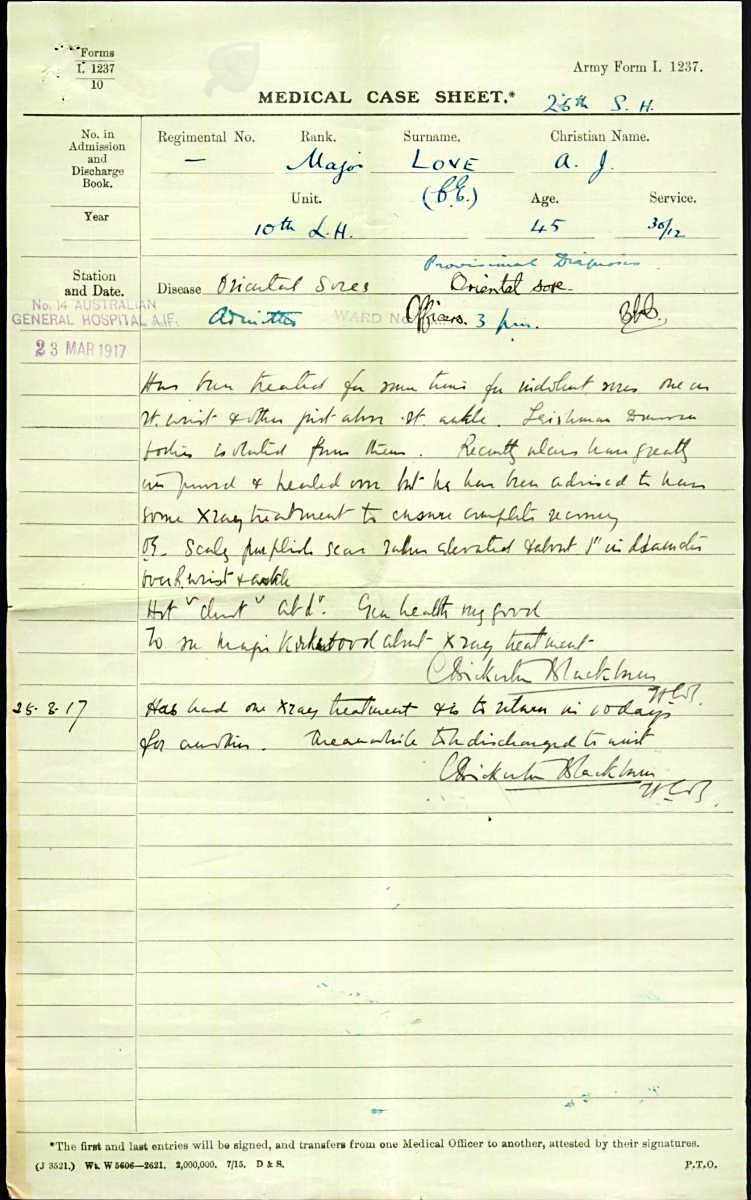 Forms
I. 1237
10
Army Form I. 1237.
MEDICAL CASE SHEET.* 26th S. H.
No. in Admission and Discharge Book.
Year
Regimental No. Rank. Surname. Christian Name.
— Major LOVE A. J.
Unit. (C.E.) Age. Service.
10th L.H. 45 30/12
Station and Date.
Provisional Diagnosis
Disease Oriental Sores Oriental sore
No. 14 AUSTRALIAN
GENERAL HOSPITAL A.I.F.
Admitted WARD No Officers. 3 pm.
23 MAR 1917
Has been treated for some time for indolent sores one on
rt. wrist & other just above rt. ankle. Leishman Donovan
bodies isolated from them. Recently ulcers have greatly
improved & healed over but he has been advised to have
some X ray treatment to ensure complete recovery
O/E. Scaly purplish scar rather elevated & about 1" in diameter
over R. wrist & ankle
Hrt "chest" abd". Gen health very good
To see Major Kirkwood about X ray treatment
C Bickerton Blackburn
25.3.17 Has had one X ray treatment & is to return in 10 days
for another. Meanwhile to be discharged to unit
C Bickerton Blackburn
*The first and last entries will be signed, and transfers from one Medical Officer to another, attested by their signatures.
(J 3521.) Wt. W 5606—2621. 2,000,000. 7/15. D & S. P.T.O.